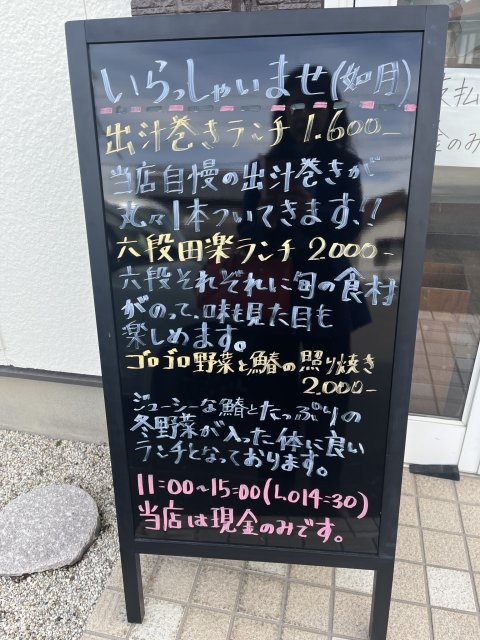 いらっしゃいませ(如月)
出汁巻きランチ 1.600-
当店自慢の出汁巻きが
丸々1本ついてきます!!
六段田楽ランチ 2.000-
六段それぞれに旬の食材
がのって、味も見た目も
楽しめます。
ゴロゴロ野菜と鰆の照り焼き
2.000-
ジューシーな鰆とたっぷりの
冬野菜が入った体に良い
ランチとなっております。
11:00~15:00(LO14:30)
当店は現金のみです。
支払
金のみ